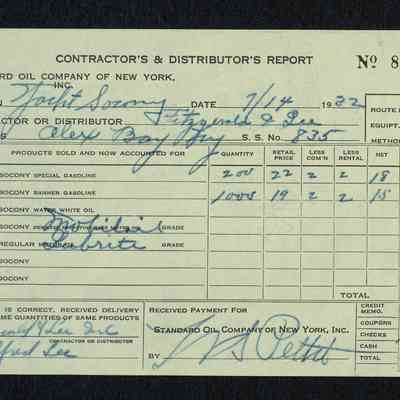 CONTRACTOR'S & DISTRIBUTOR'S REPORT Nº 8
RD OIL COMPANY OF NEW YORK, INC.
Yacht Socony DATE 7/14 1932
ACTOR OR DISTRIBUTOR Fitzgerald & Lee
Alex Bay NY S. S. No. 835
ROUTE
EQUIPT.
M
PRODUCTS SOLD AND NOW ACCOUNTED FOR QUANTITY RETAIL PRICE LESS COM'N LESS RENTAL NET
SOCONY SPECIAL GASOLINE 200 22 2 2 18
SOCONY BANNER GASOLINE 1000 19 2 2 15
SOCONY WATER WHITE OIL
Mobiloil GRADE
REGULAR Lubrite GRADE
SOCONY
SOCONY
TOTAL
IS CORRECT, RECEIVED DELIVERY
AME QUANTITIES OF SAME PRODUCTS
& Lee Inc
CONTRACTOR OR DISTRIBUTOR
fred Lee
RECEIVED PAYMENT FOR
STANDARD OIL COMPANY OF NEW YORK, INC.
BY Pettit
CREDIT MEMO.
COUPONS
CHECKS
CASH
TOTAL